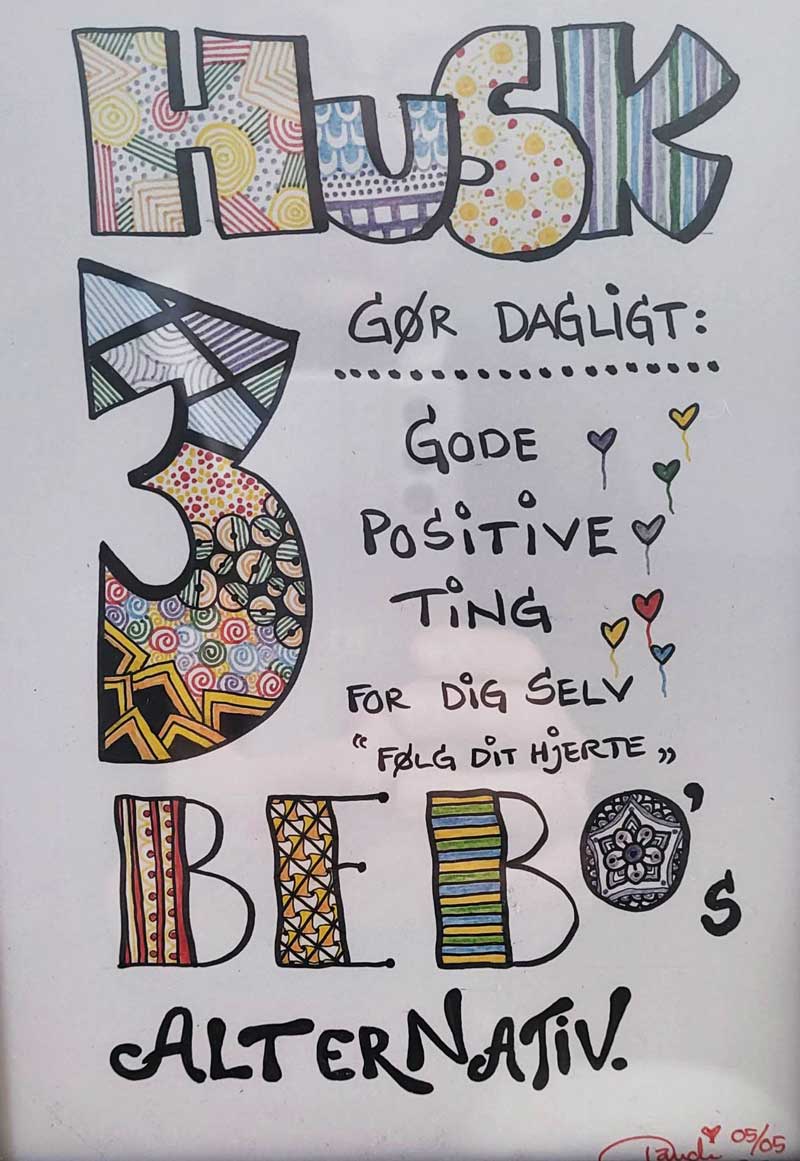 HUSK
3
GØR DAGLIGT:
GODE
POSITIVE
TING
FOR DIG SELV
“FØLG DIT HJERTE„
BEBO's
ALTERNATIV.
05/05